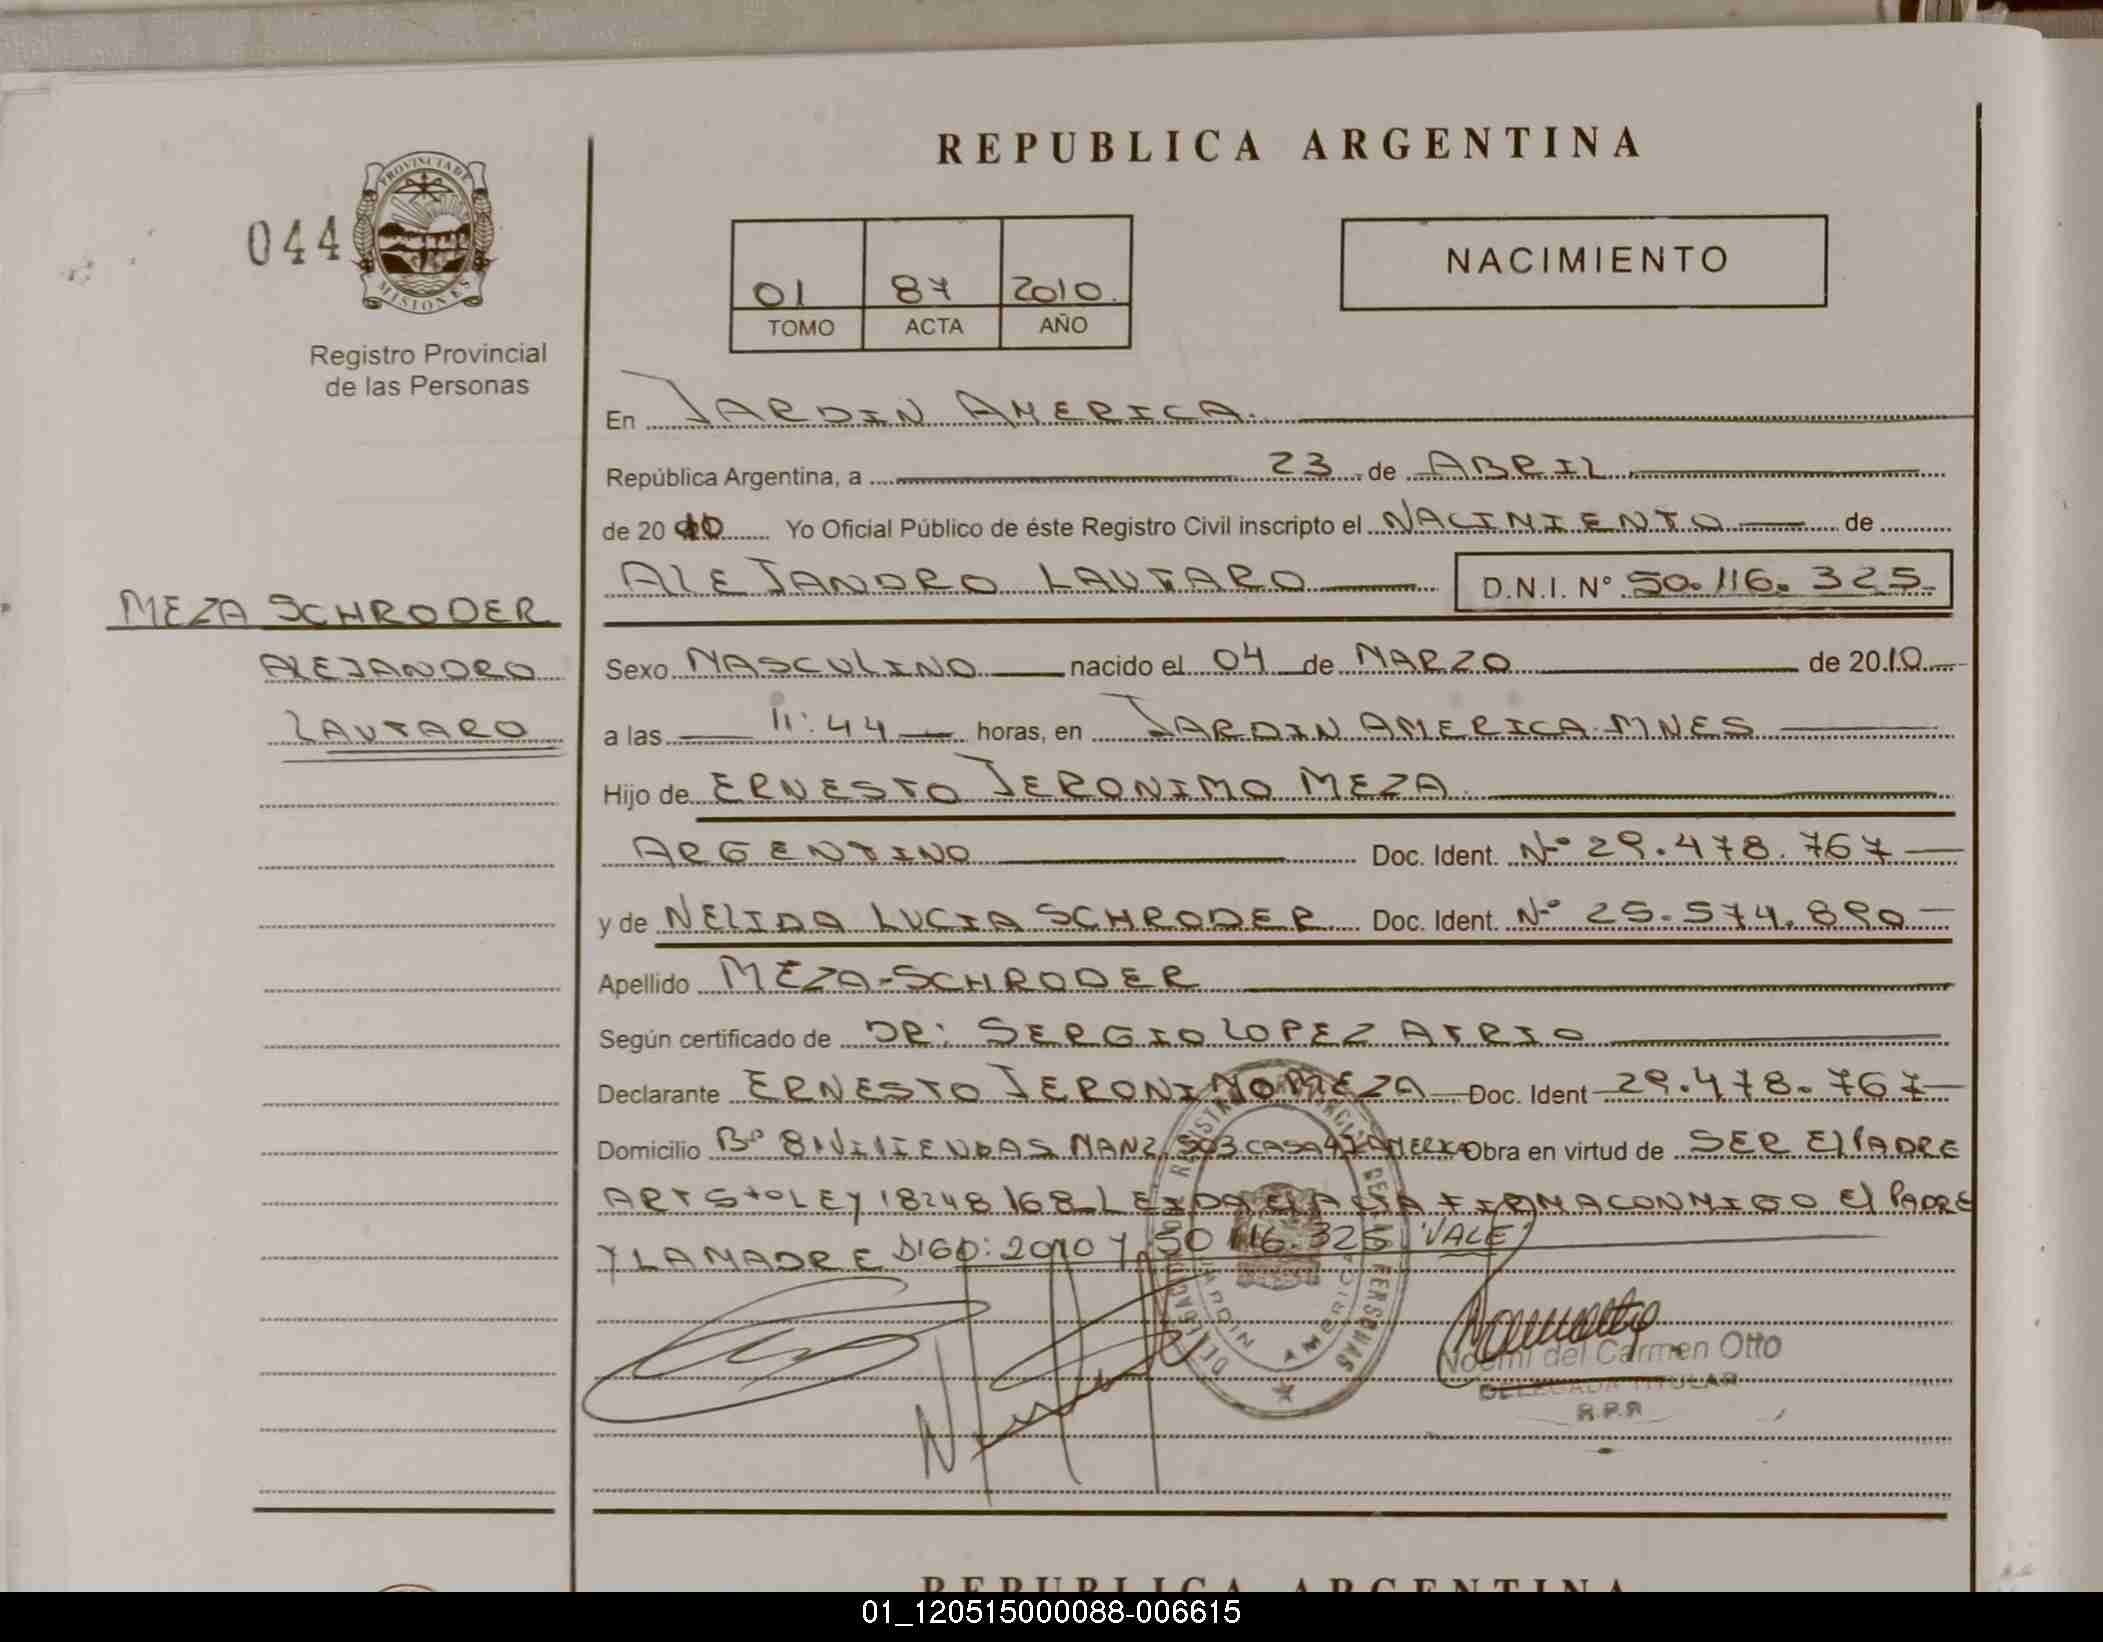 REPUBLICA ARGENTINA
044
PROVINCIA DE
MISIONES
Registro Provincial
de las Personas
01 87 2010.
TOMO ACTA AÑO
NACIMIENTO
En JARDIN AMERICA.
República Argentina, a 23 de ABRIL
de 2010 Yo Oficial Público de éste Registro Civil inscripto el NACIMIENTO de
ALEJANDRO LAUTARO D.N.I. N° 50.116.325
MEZA SCHRODER
ALEJANDRO
LAUTARO
Sexo MASCULINO nacido el 04 de MARZO de 2010
a las 11:44 horas, en JARDIN AMERICA-MNES
Hijo de ERNESTO JERONIMO MEZA
ARGENTINO Doc. Ident. Nº 29.478.767
y de NELIDA LUCIA SCHRODER Doc. Ident. Nº 25.574.890
Apellido MEZA-SCHRODER
Según certificado de DR: SERGIO LOPEZ ATRIO
Declarante ERNESTO JERONIMO MEZA Doc. Ident 29.478.767
Domicilio Bº 81 VIVIENDAS MANZ. 503 CASA 4 Obra en virtud de SER El PADRE
ART 5to LEY 18248/68 LEIDA El ACTA FIRMA CONMIGO El PADRE
Y LA MADRE DIGO: 2010 Y 50 116.325 "VALE"
DELEGACION REGISTRO DE PERSONAS
JARDIN AMERICA
Noemi del Carmen Otto
DELEGADA TITULAR
R.P.P
REPUBLICA ARGENTINA
01_120515000088-006615